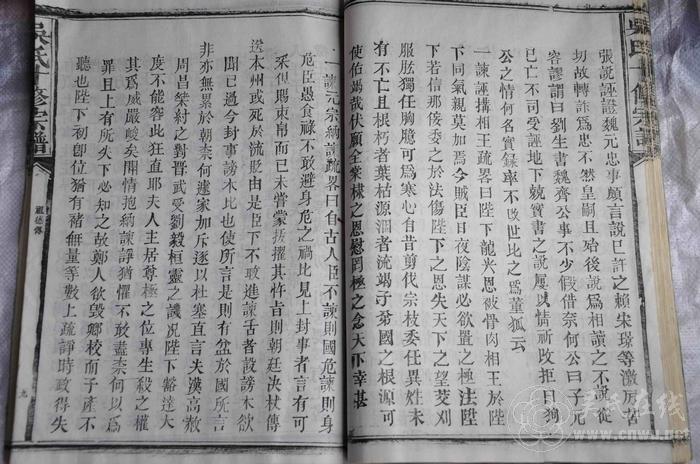 張說誣證魏元忠事頗言說已許之賴宋璟等激厲苦
切故轉詐爲忠不然皇嗣且殆後說爲相讀之不說從
容謬謂曰劉生書魏齊公事不少假借奈何公曰子元
已亡不可受誣地下兢實書之說屢以情祈改拒曰狥
公之情何名實錄卒不改世比之爲董狐云
一諫誣搆相王疏畧曰陛下龍光恩被骨肉相王於陛
下同氣親莫加焉今賊臣日夜陰謀必欲置之極法陛
下若信那倭委之於法傷陛下之恩失天下之望芟刈
服肱獨任胸臆可爲寒心自昔剪伐宗枝委任異姓未
有不亡且根朽者葉枯源涸者流竭子弟國之根源可
使伯焉哉伏願全棠棣之恩慰罔極之念天下幸甚
一諫元宗納諫疏畧曰自古人臣不諫則國危諫則身
危臣愚食祿不敢避身危之禍比見上封事者言有可
采但賜束帛而已未嘗蒙拔擢其忤旨則朝廷決杖傳
送本州或死於流貶由是臣下不敢進諫古者設謗木欲
聞已過今封事謗木比也使所言是則有益於國所言
非亦無累於朝柰何遽家加斥逐以杜塞直言夫漢高赦
周昌桀紂之對晉武受劉毅桓靈之譏况陛下豁達大
度不能容此狂直耶夫人主居尊極之位專生殺之權
其爲威嚴峻矣開情抱納諫諍猶懼不敢盡柰何以爲
罪且上有所失下必知之故鄭人欲毁鄉校而子產不
聽也陛下初卽位猶有豬無量等數上疏諍時政得失
吳氏十修宗譜
祖德傳
九
吳氏十修宗譜
吴氏在线
www.cnwu.net